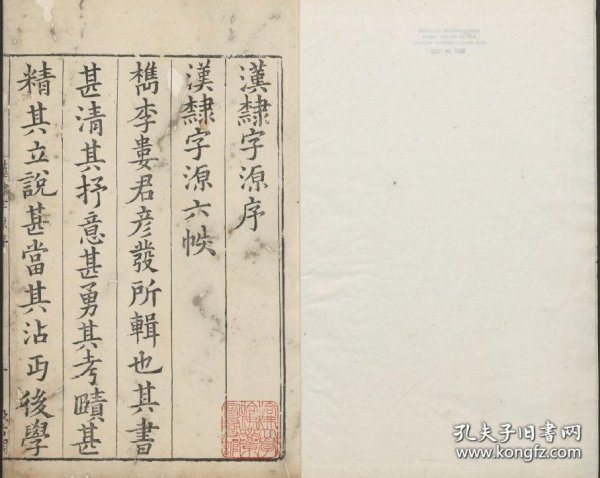 漢隸字源序
漢隸字源六帙
檇李婁君彦發所輯也其書
甚清其抒意甚勇其考賾甚
精其立說甚當其沾丐後學
孔夫子旧书网
www.kongfz.com